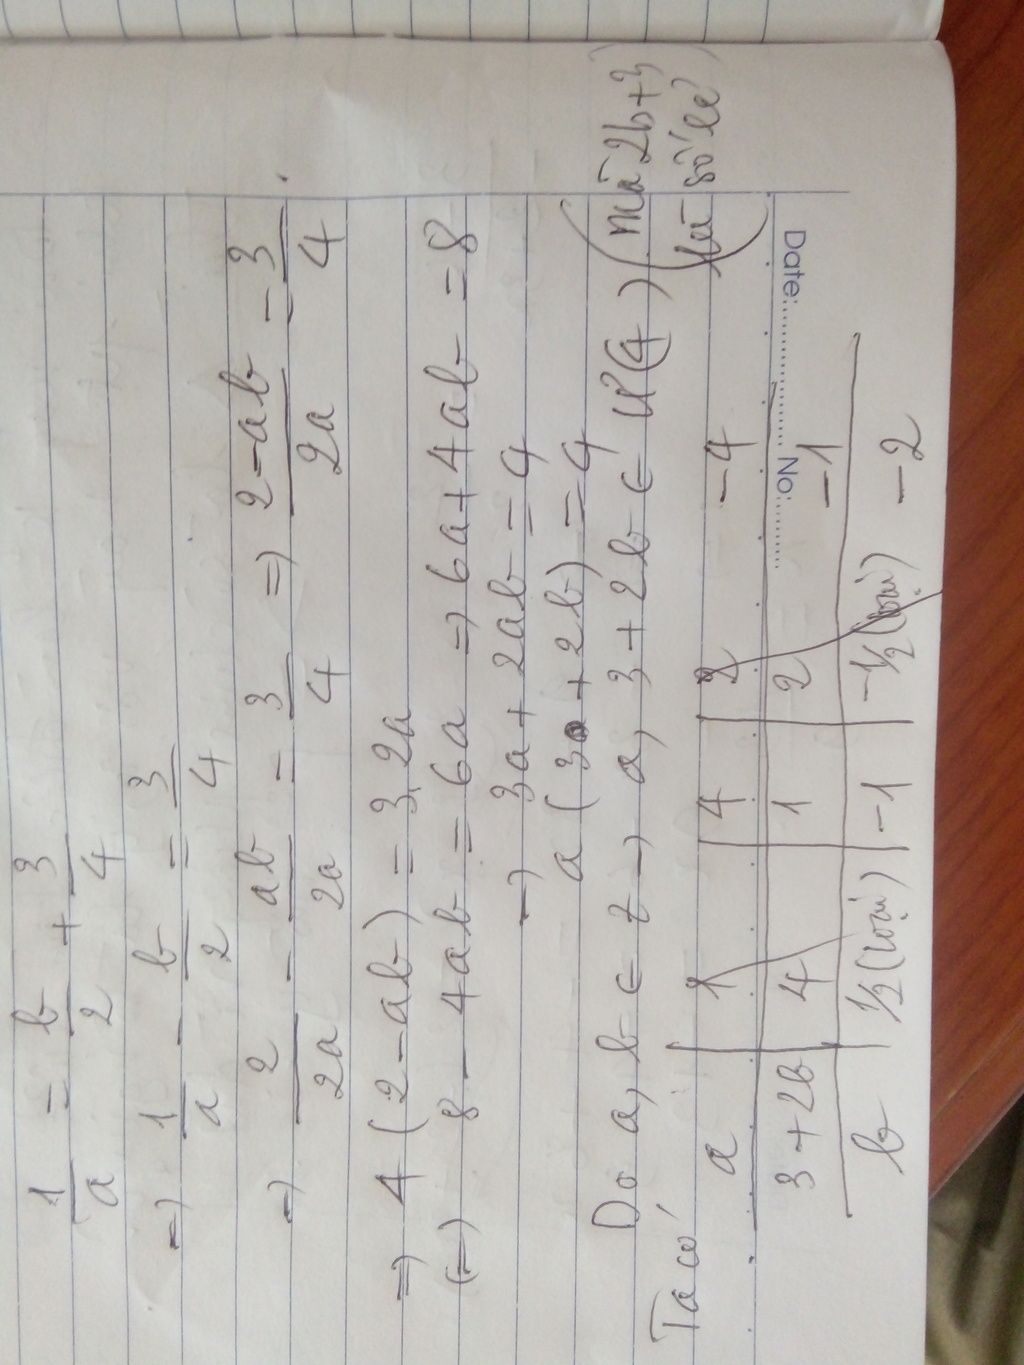 1/a = b/2 + 3/4
=) 1/a - b/2 = 3/4
=) 2/2a - ab/2a = 3/4 =) 2-ab/2a = 3/4
=) 4(2-ab) = 3.2a
(=) 8 - 4ab = 6a =) 6a + 4ab = 8
=) 3a + 2ab = 4
a(3 + 2b) = 4
Do a, b ∈ z → a, 3 + 2b ∈ Ư(4) (mà 2b+3
là số lẻ)
Ta có
a 1 4 2 -4
3+2b 4 1 2 -1
Date: No:
b 1/2 (loại) -1 -1/2 (loại) -2